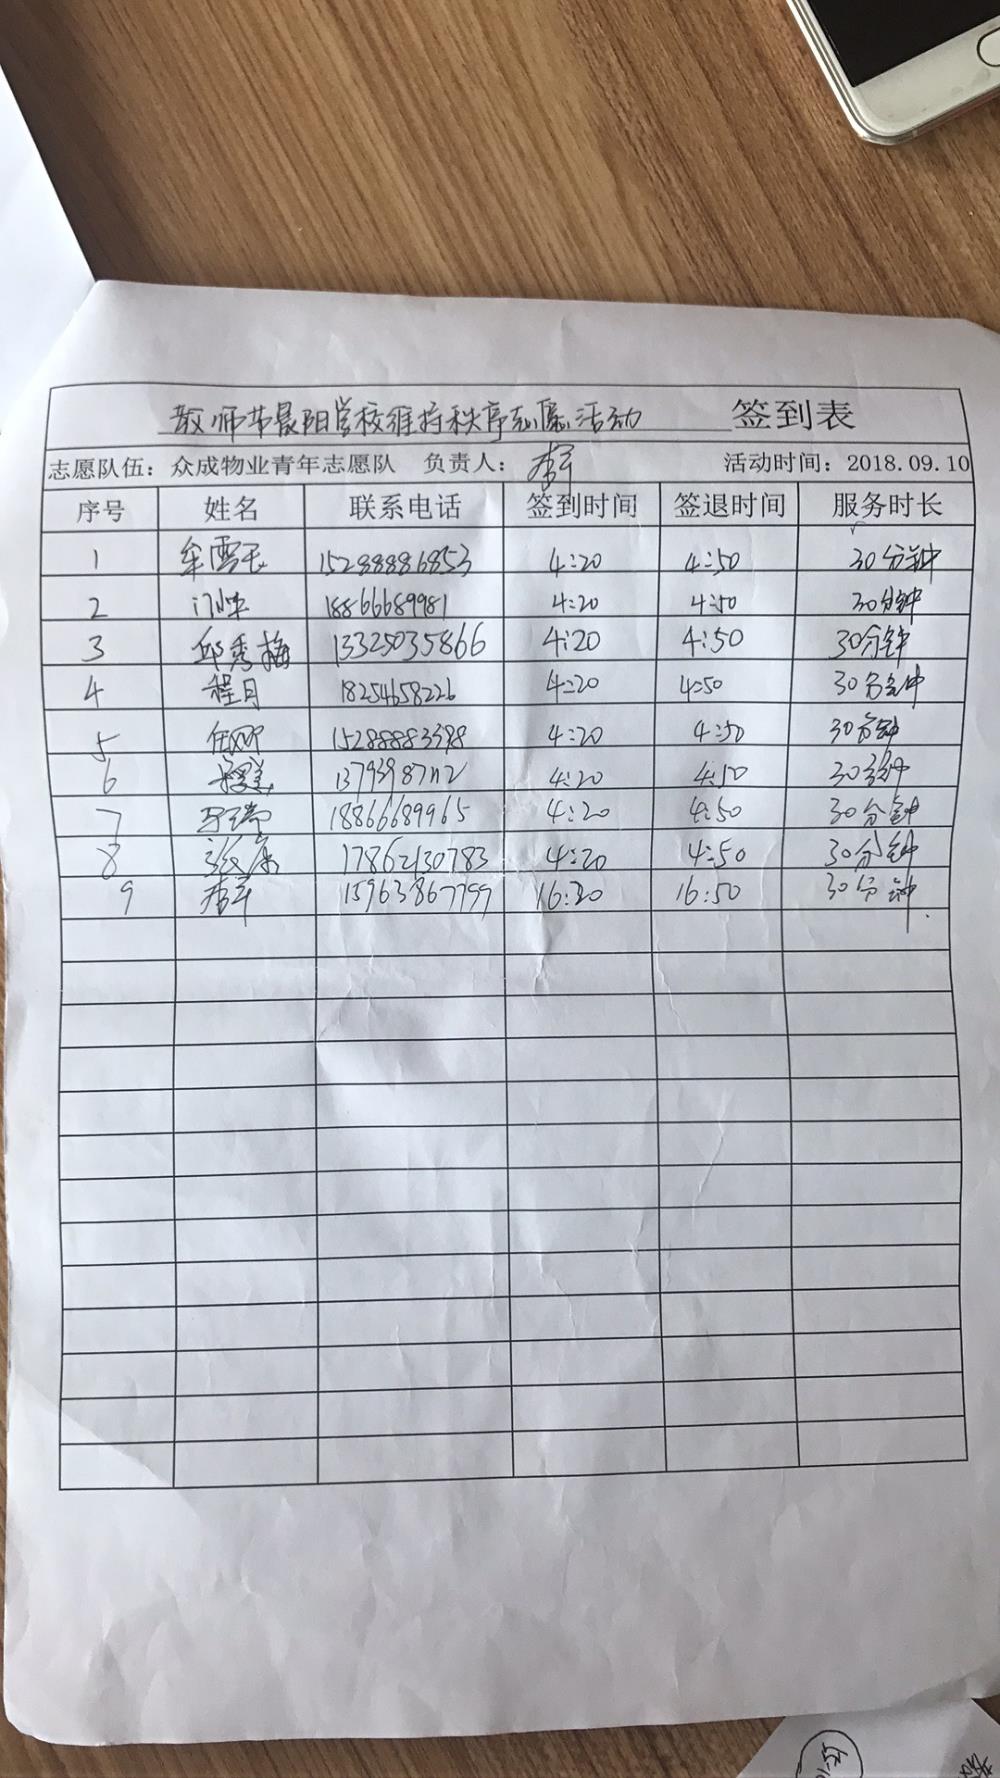 教师节晨阳学校维持秩序志愿活动 签到表
志愿队伍：众成物业青年志愿队 负责人： 活动时间：2018.09.10
序号 姓名 联系电话 签到时间 签退时间 服务时长
1 15288886853 4:20 4:50 30分钟
2 18866689981 4:20 4:50 30分钟
3 邱秀梅 13325035866 4:20 4:50 30分钟
4 程月 18254658226 4:20 4:50 30分钟
5 15288883398 4:20 4:50 30分钟
6 4:20 4:50 30分钟
7 18866689965 4:20 4:50 30分钟
8 17862130783 4:20 4:50 30分钟
9 15963867799 16:20 16:50 30分钟